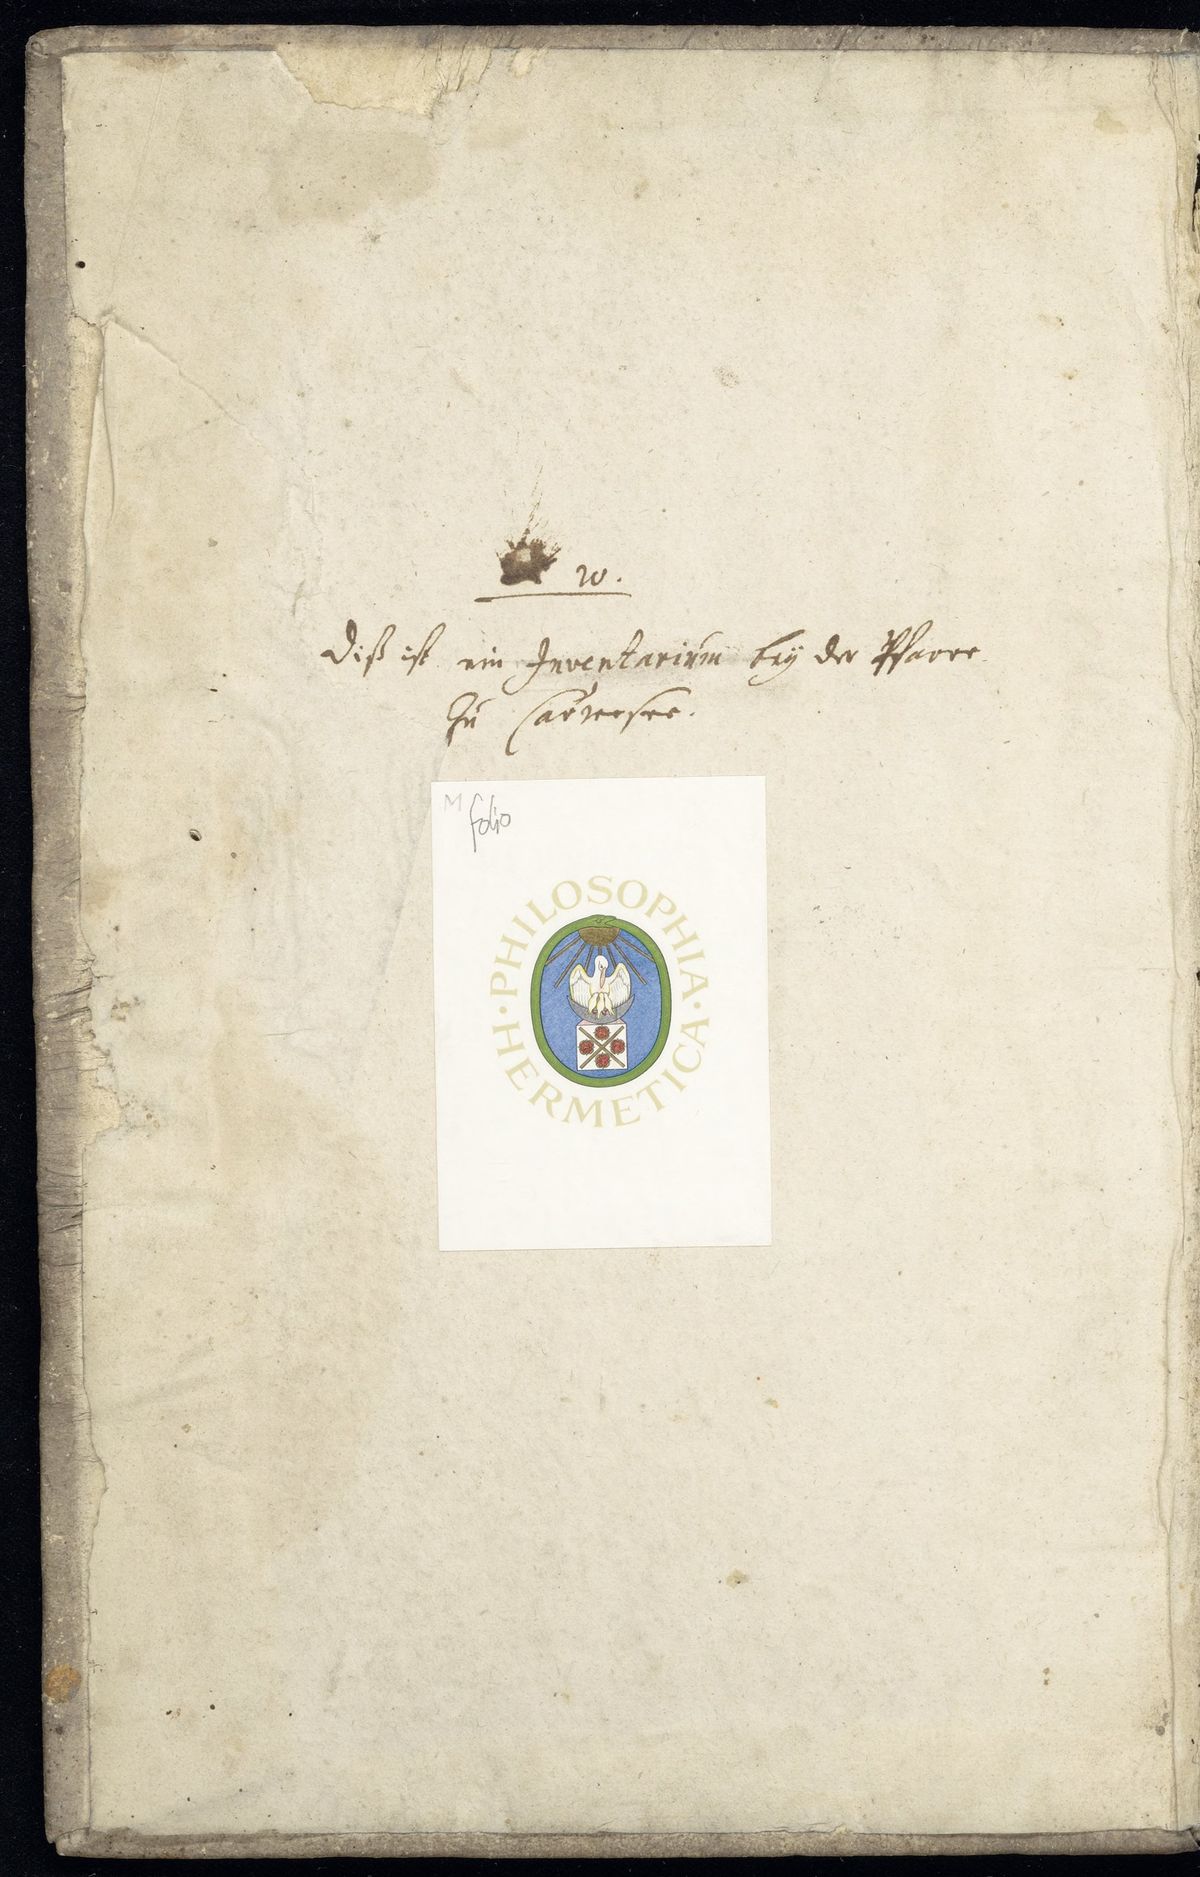 20.
Diß ist ein Inventarium beÿ der Pfarre
zu
M
folio
PHILOSOPHIA · HERMETICA ·